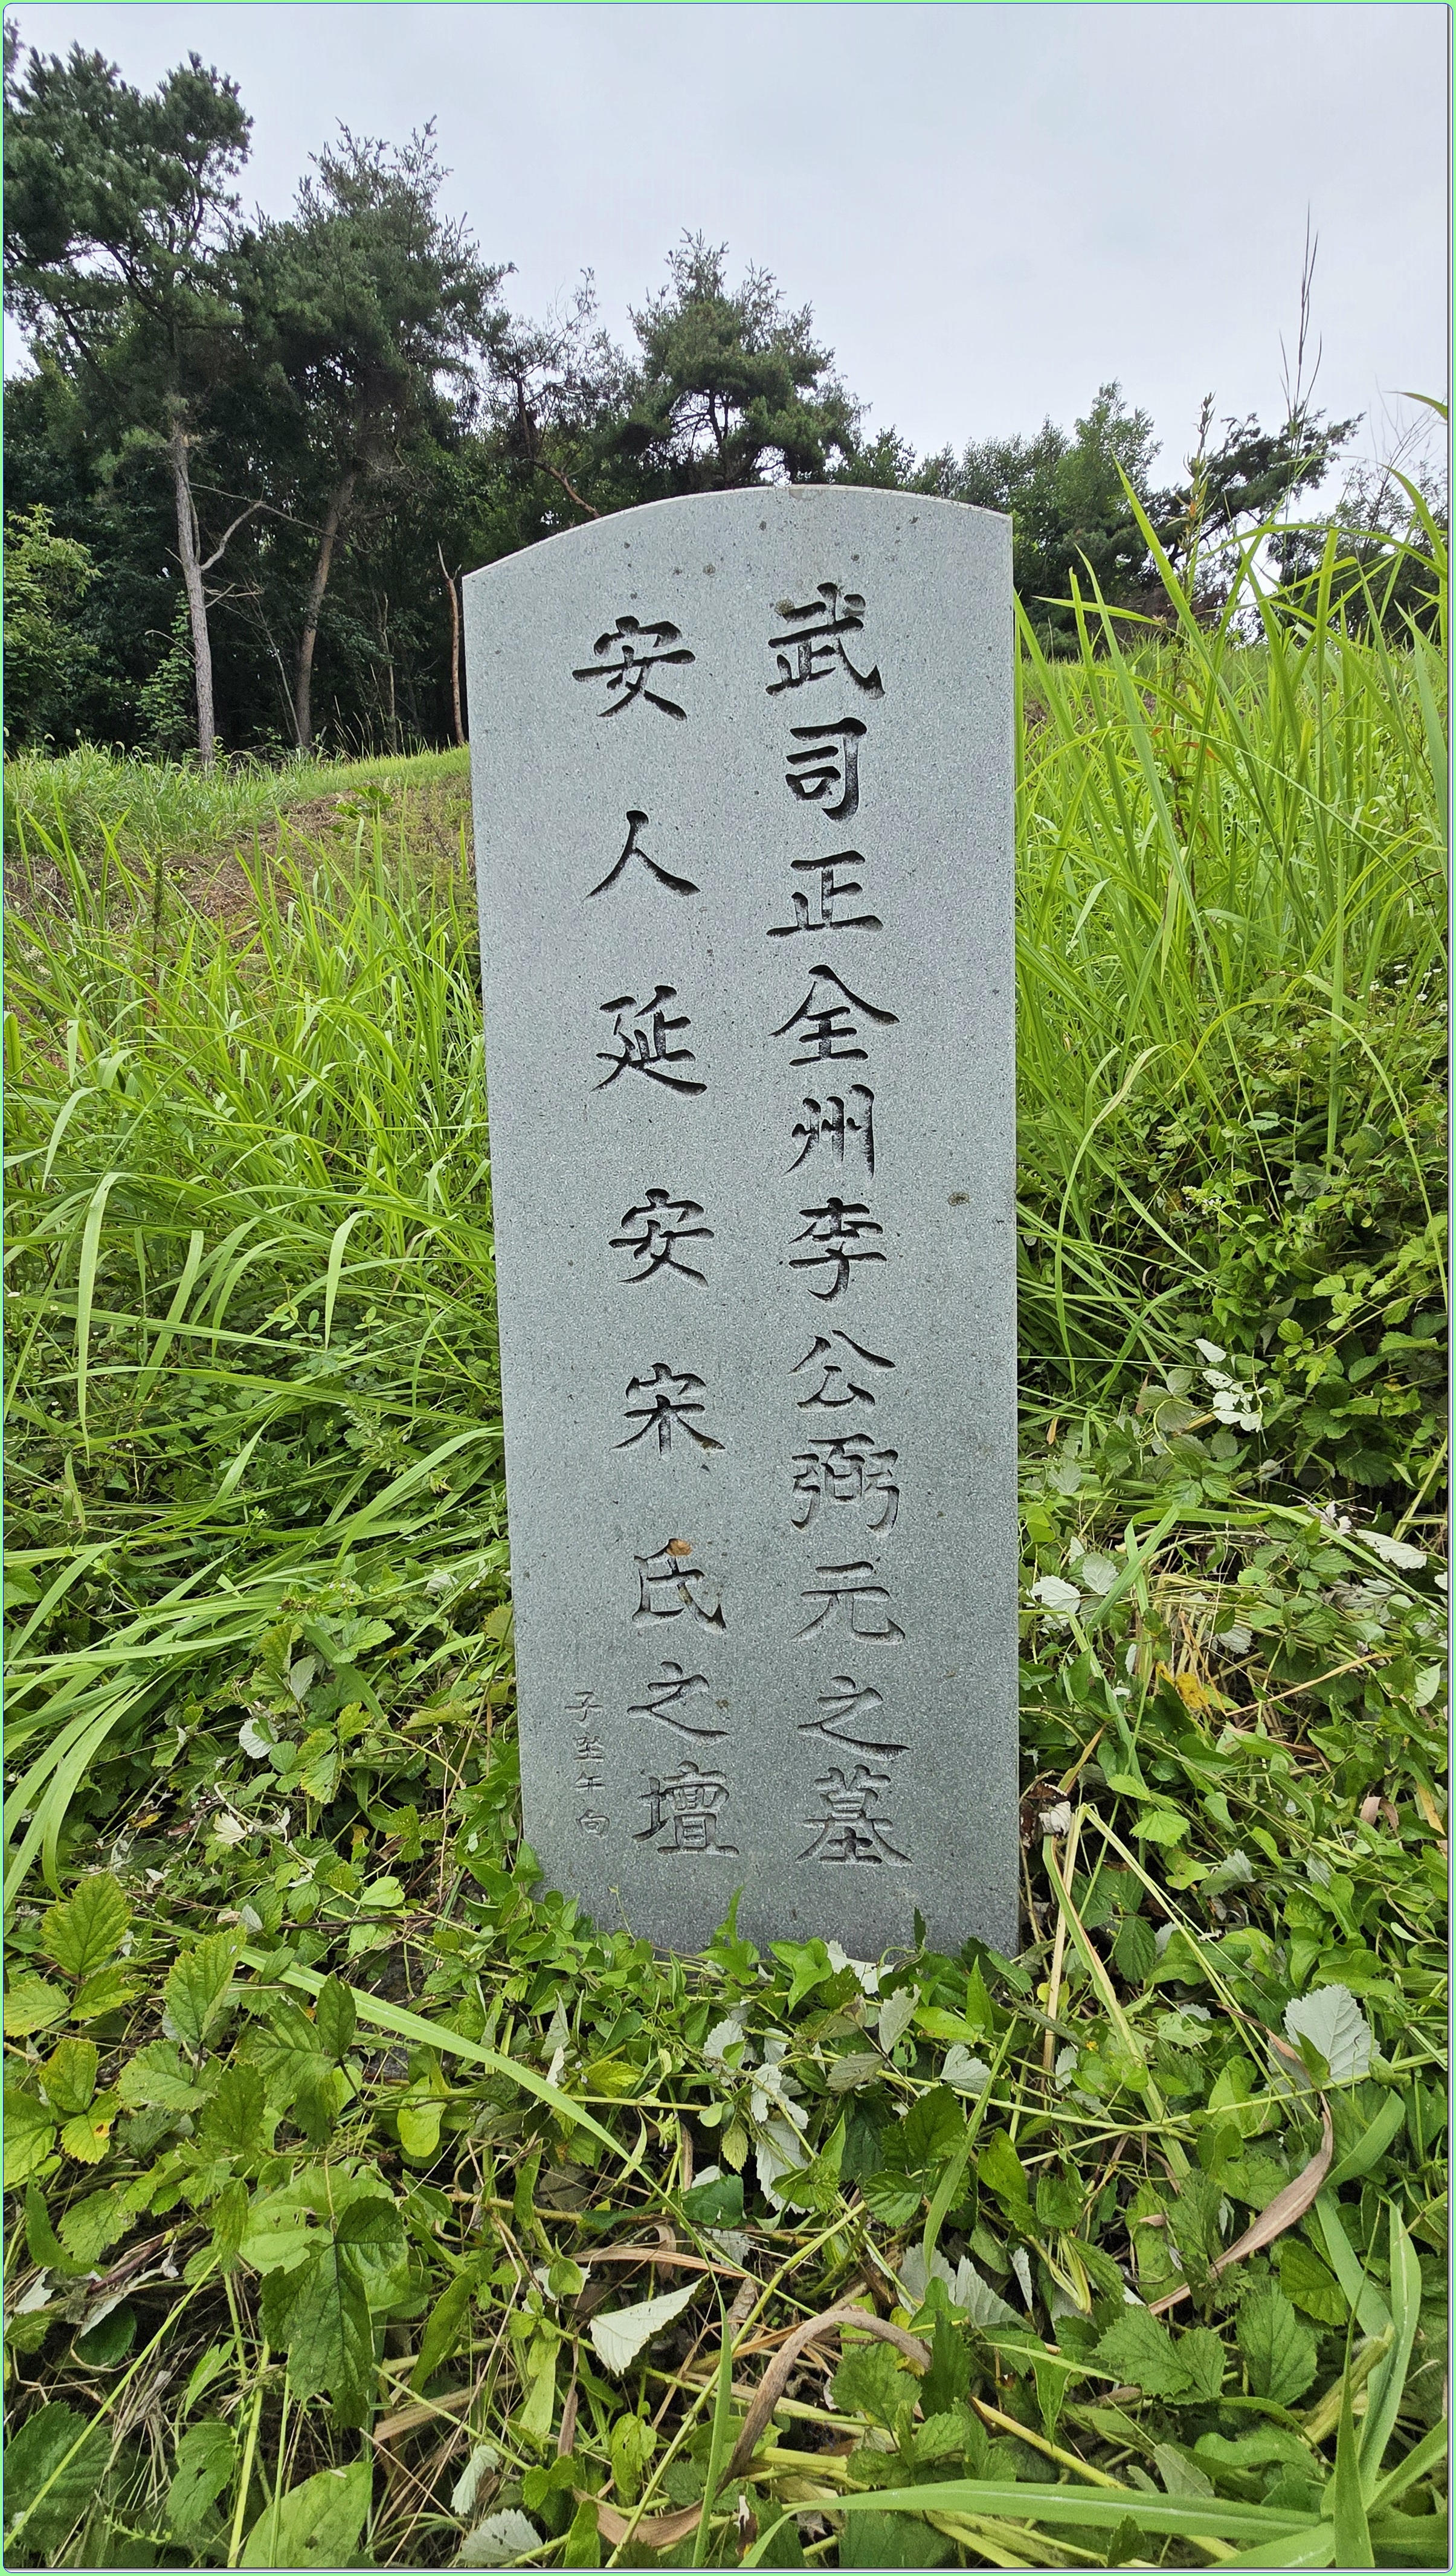 武司正全州李公弼元之墓
安人延安宋氏之壇
子坐午向